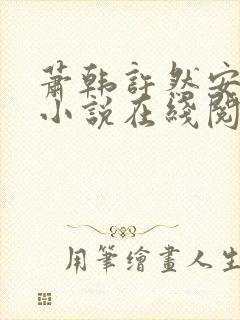 萧韩许然安
小说在线阅
用筆繪畫人生